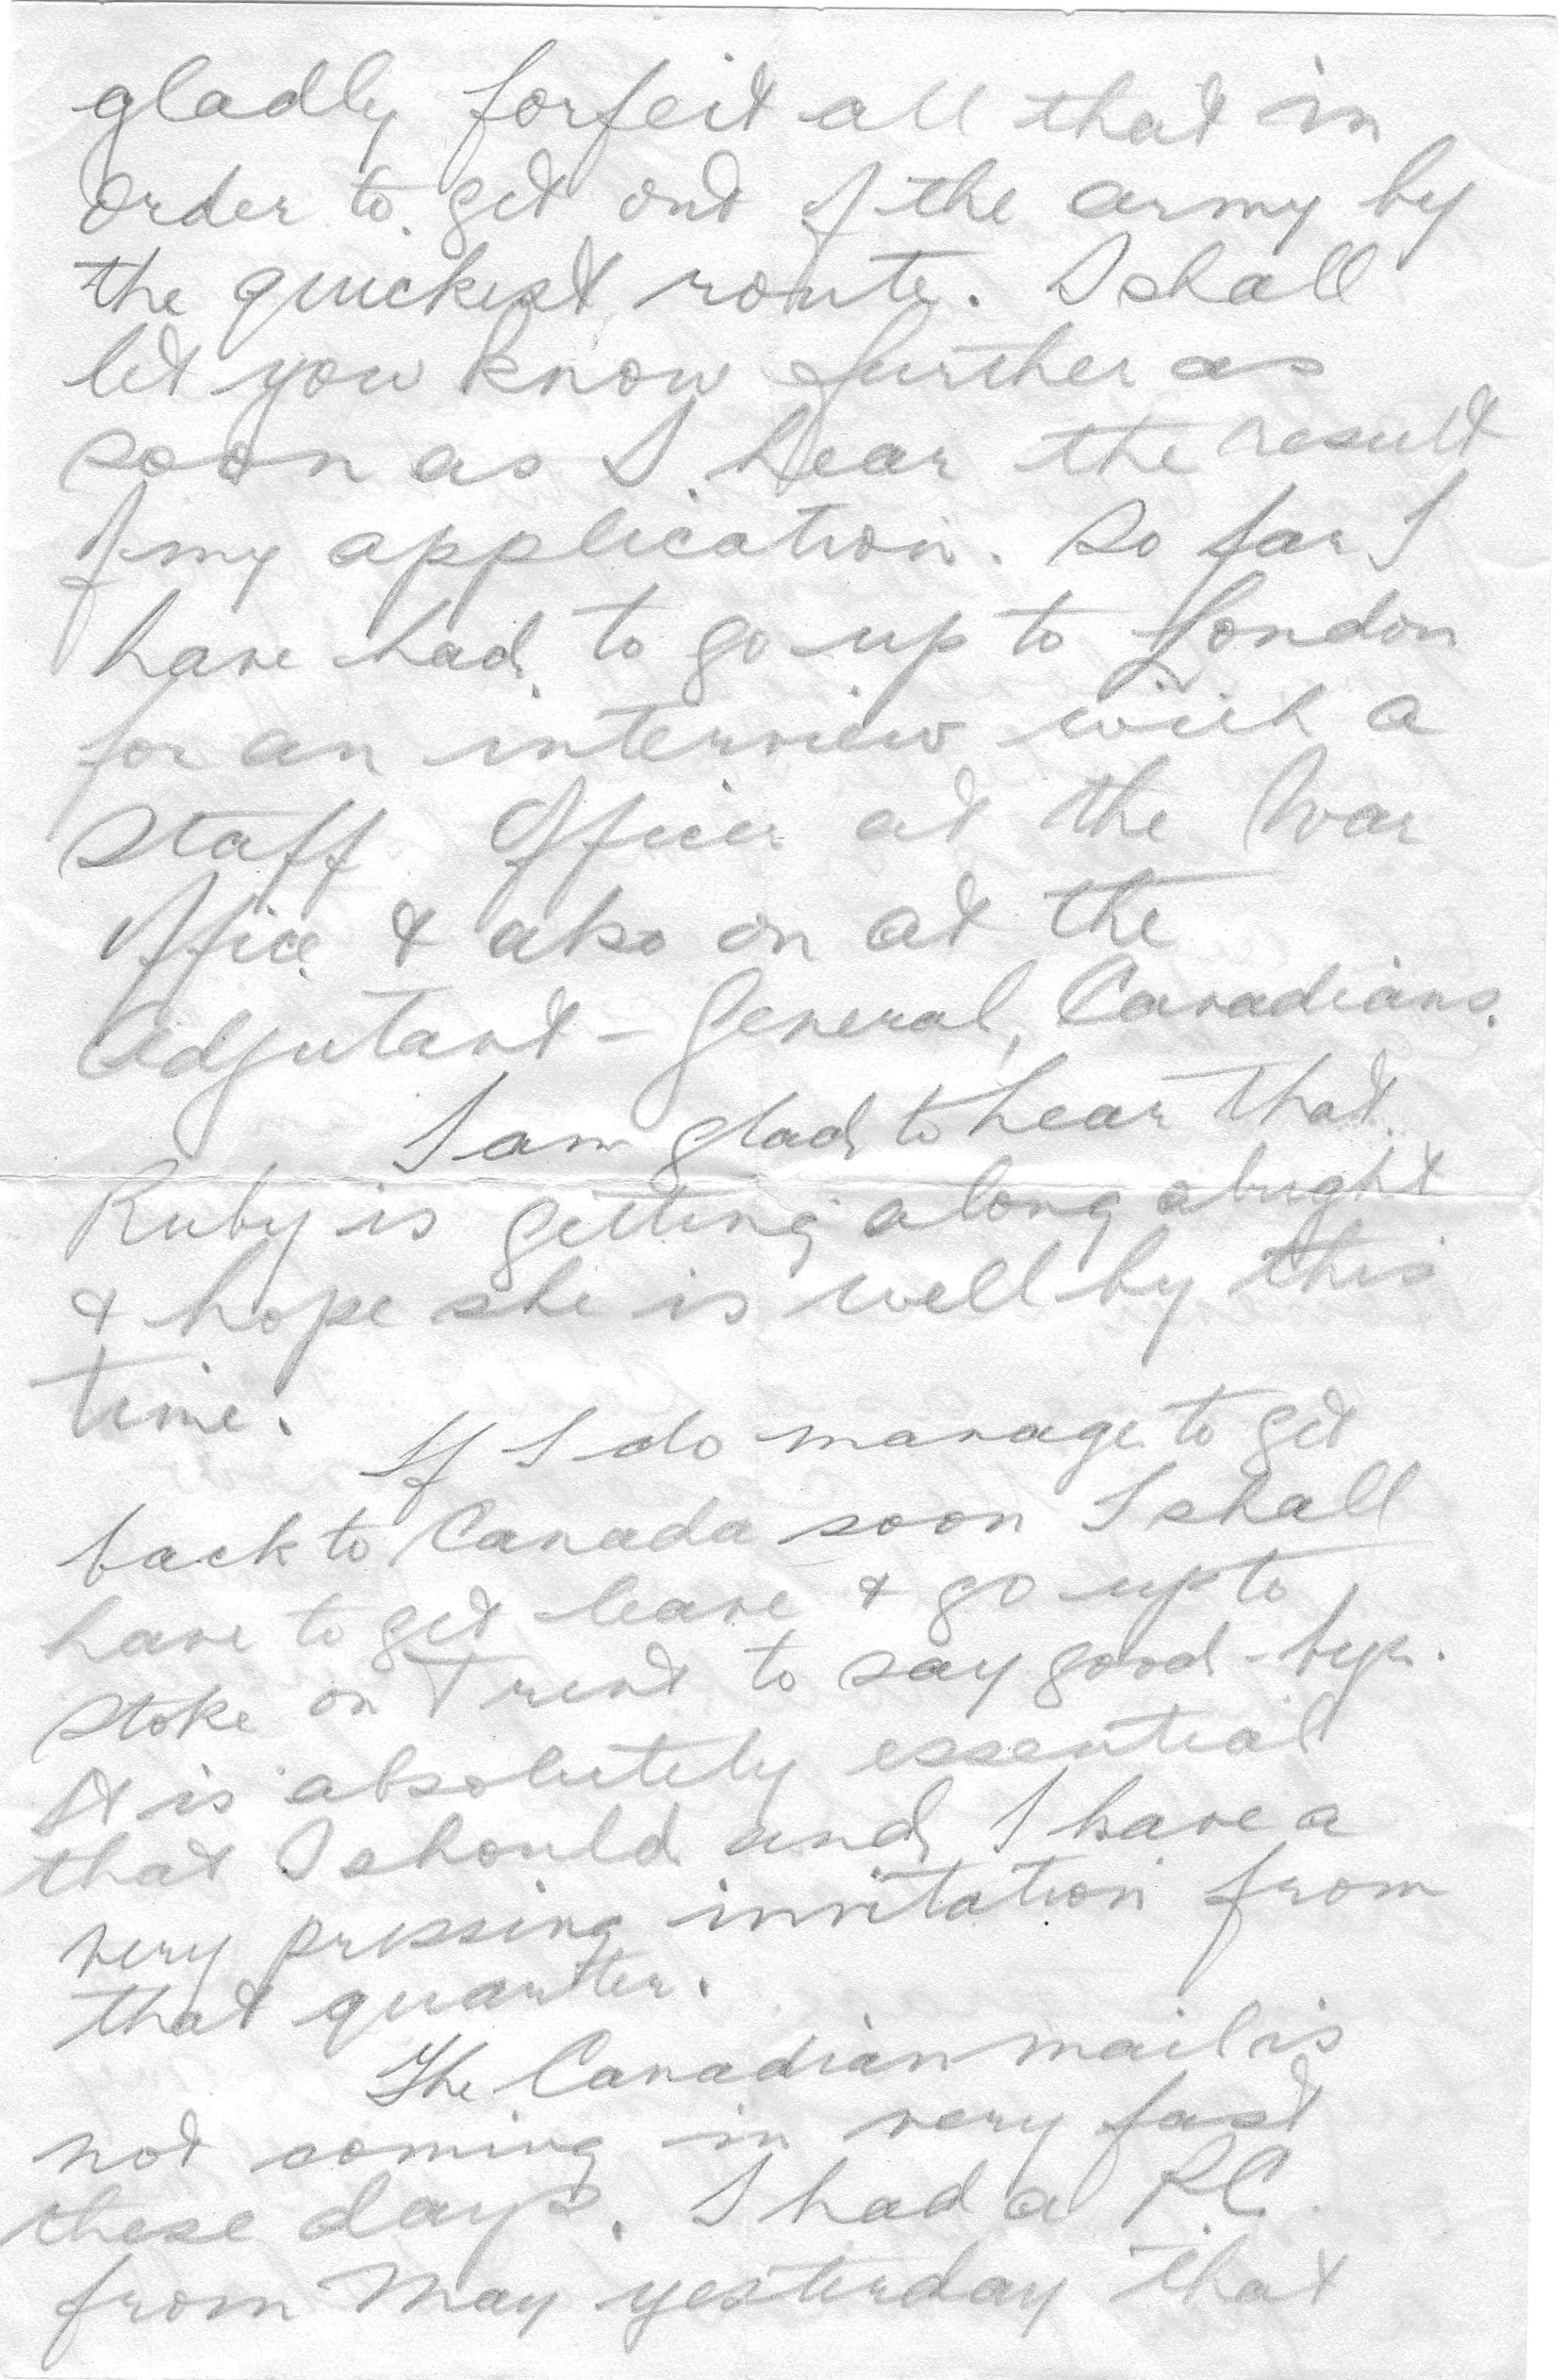 gladly forfeit all that in
order to get out of the army by
the quickest route. I shall
let you know further as
soon as I hear the result
of my application. So far I
have had to go up to London
for an interview with a
Staff Officer at the War
Office & also on at the
Adjutant-General, Canadians.
I am glad to hear that
Ruby is getting along alright
& hope she is well by this
time.
If I do manage to get
back to Canada soon I shall
have to get leave & go up to
Stoke on Trent to say good-bye.
It is absolutely essential
that I should and I have a
very pressing invitation from
that quarter.
The Canadian mail is
not coming in very fast
these days. I had a P.C.
from May yesterday that